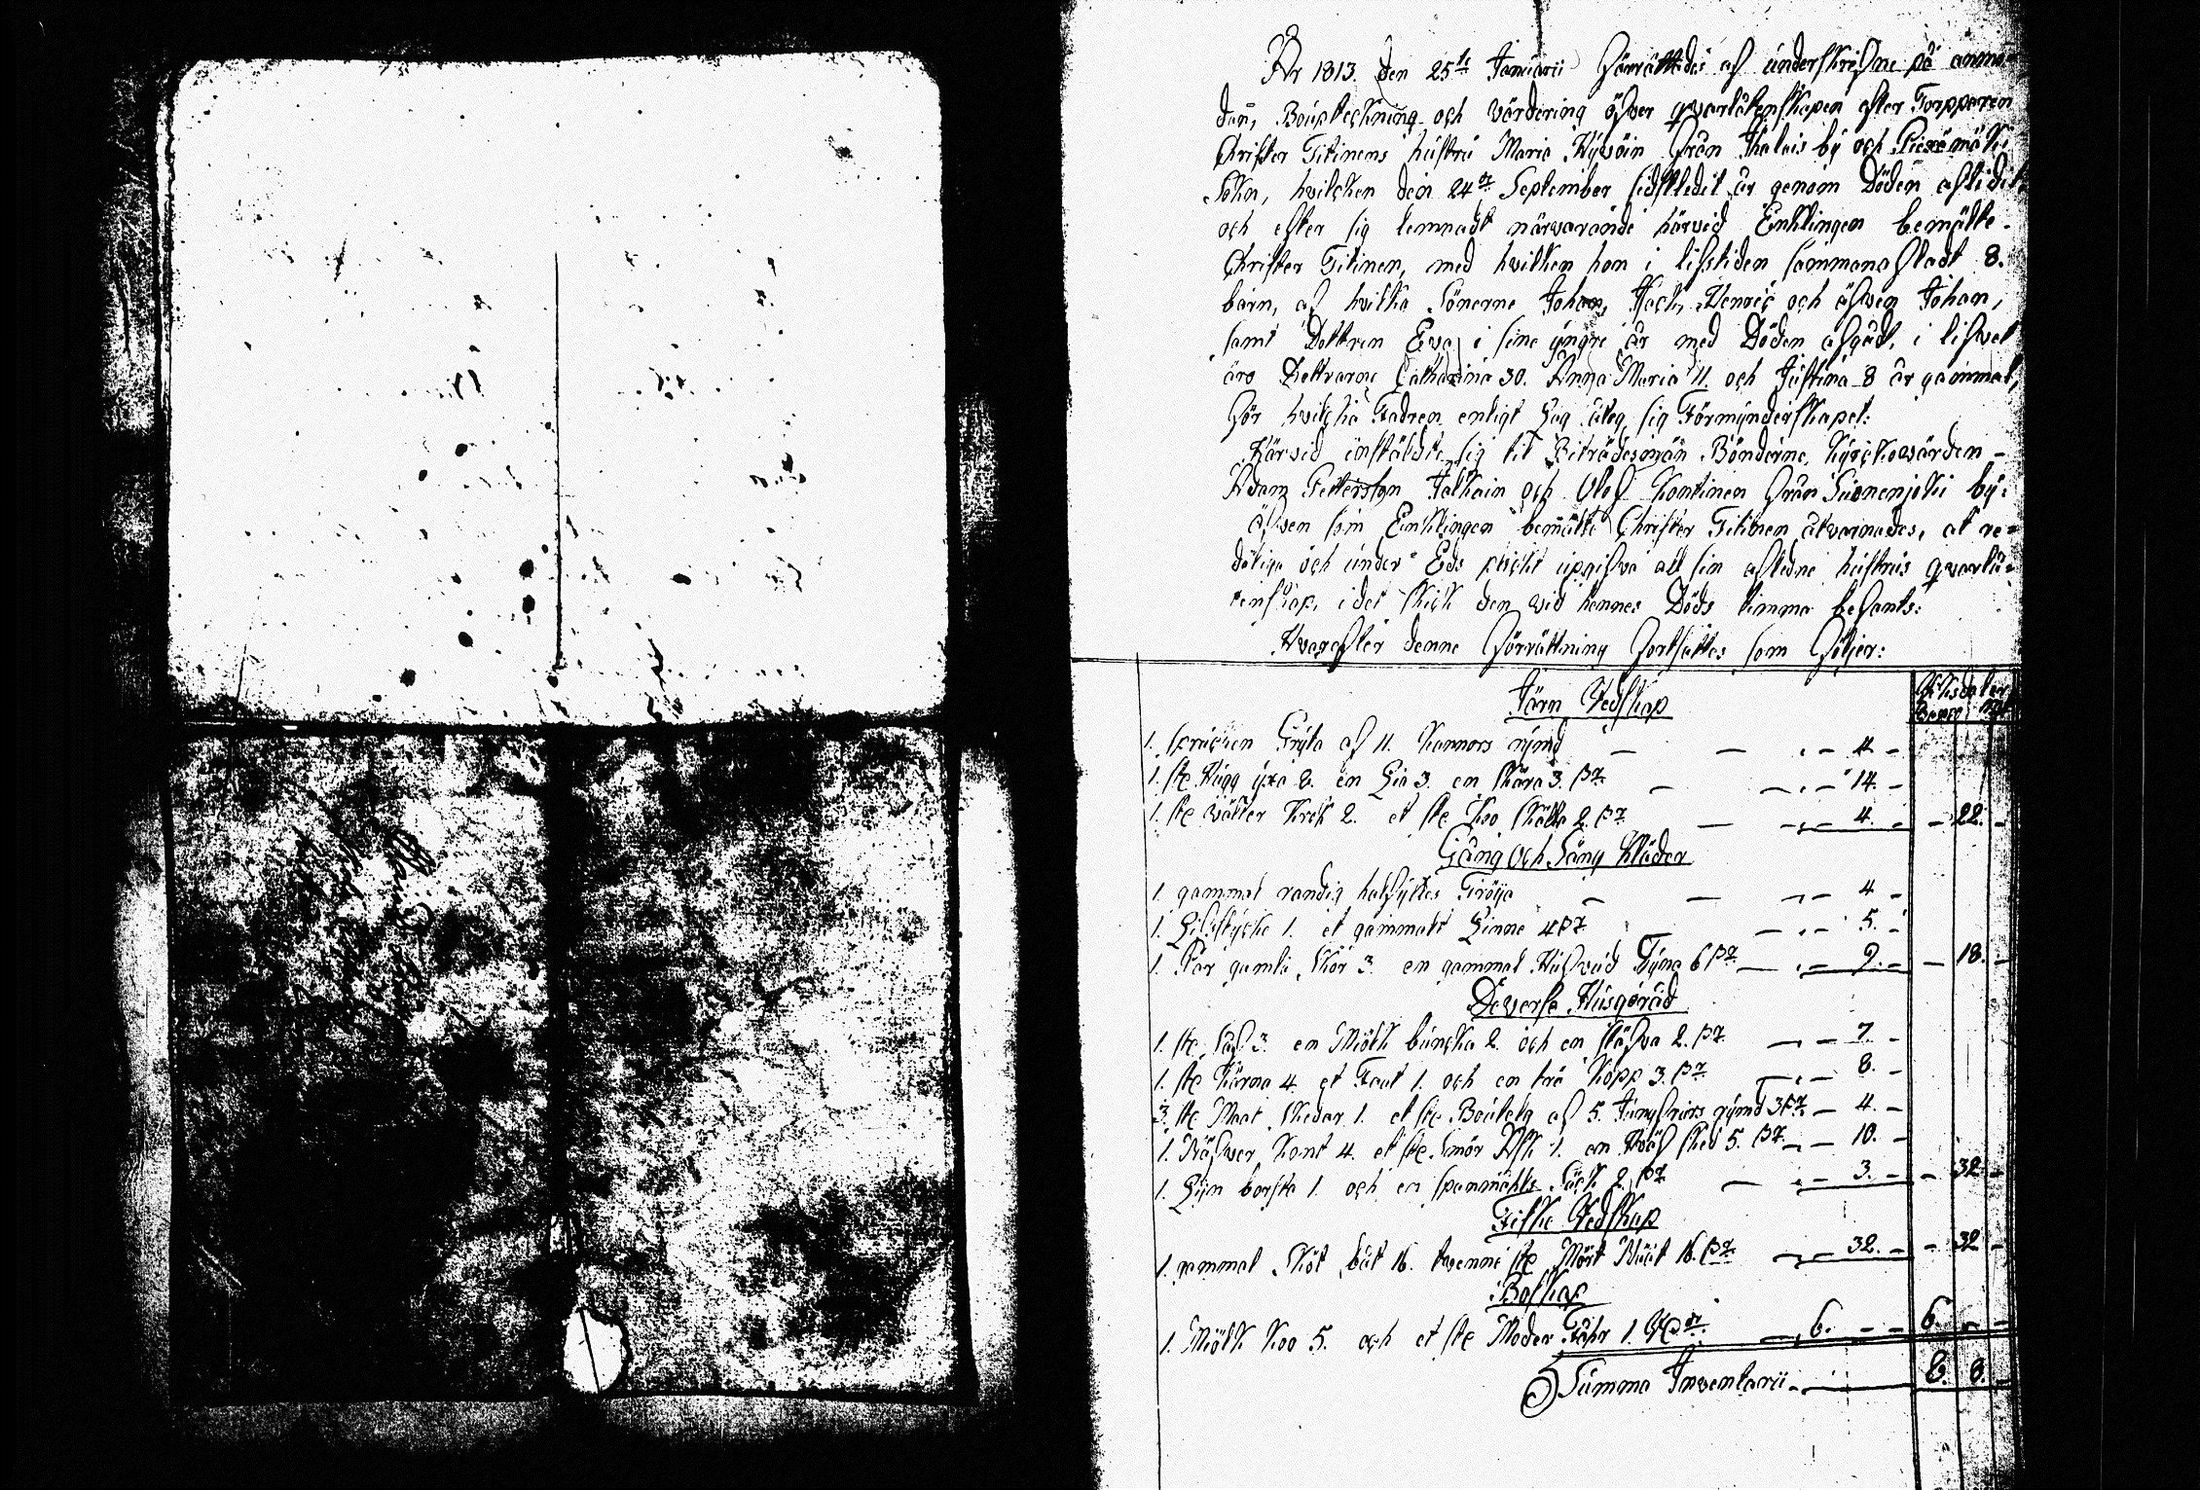 År 1813. den 25te Januarii förrättades af underskrifne på anmo-
dan, Bouptekning och värdering öfver qwarlåtenskapen efter Torpparen
Christer Titinens hustru Maria Hyvöin från Thalais by och Piexemäki
Sokn, hvilcken den 24de September sidstledit år genom Döden aflidit
och efter sig lemnadt närvarande härvid Enklingen bemälte
Christer Titinen, med hvilken hon i lifstiden sammanafladt 8.
barn, af hvilka Sönerne Johan, Isach, Henric och äfven Johan,
samt Dottren Eva i sine yngre år med Döden afgådt, i lifvet
äro Dottrarne Catharina 30. Anna Maria 11. och Justina 8 år gammal,
för hvilcka Fadren enligt Lag åtog sig Förmynderskapet:
Härvid instäldte sig til Biträdesmän Bönderne, Kyrckovärden
Adam Petterson Jalkain och Olof Kontinen från Suonenjoki by:
äfven som Enklingen bemälte Christer Titinen åtvarnades, at re-
deliga och under Eds plicht upgifva all sin aflidne hustrus qvarlå-
tenskap, i det skick den vid hennes Döds timma befants:
Hvarefter denne förrättning fortsattes som följer:
Järn Redskap
Riksdaler
1. sprucken Gryta af 11. Kannors rymd — — . - 4. -
1. st. Hugg yxa 8. en Lia 3. en skära 3. ßr — - . - 14. -
1. st. 2. et st. Koo skälla 2. ßr — - . - 4. - - 22. -
Gång Och Säng Kläder
1. gammal randig halfyltes Tröija — — - . - 4 -
1. Lifstycke 1. et gammalt Linne 4 ßr — . - 5. -
1. Par gamla Skor 3. en gammal Hufvud Dyna 6 ßr — . - 9. - - 18. -
Diverse Husgeråd
1. st. Såf 3. en Miölk buncka 2. och en stäfva 2. ßr — - 7. -
1. st. Kärna 4. et Faat 1. och en trä Kopp 3. ßr — . - 8. -
3. st. Maat Skedar 1. et st. Bouteln af 5. Jungfrurs rymd 3 ßr - 4. -
1. Näfver Kont 4. et st. Smör Ask 1. en Wäf sked 5. ßr - - 10. -
1. Lijn borsta 1. och en Säck 2. ßr — . - 3. - - 32 -
Fiske Redskap
1. gammal Nöt båt 16. tvenne st. Mört 16. ßr — - 32. - - 32 -
Boskap
1. Miölk Koo 5. och et st. Moder Fåhr 1. Rdr — , 6. - - 6 - -
Summa Inventarii - . — 8. 8.